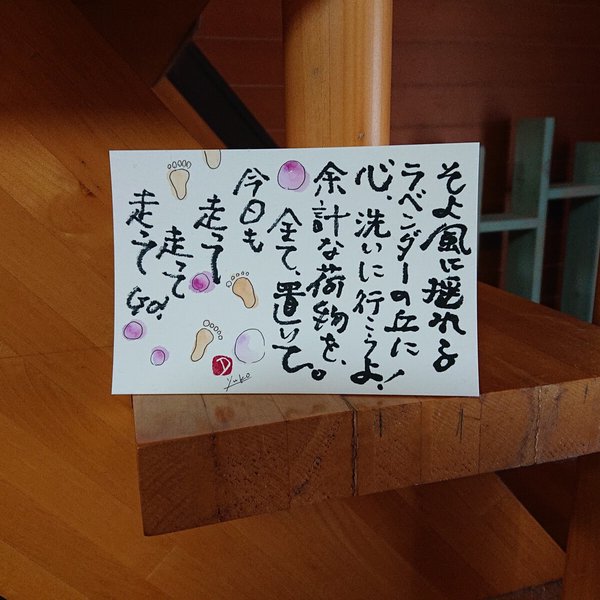 そよ風に揺れる
ラベンダーの丘に
心、洗いに行こうよ!
余計な荷物を、
全て、置いて。
今日も
走って
走って
走って
Go!
D
Yuko